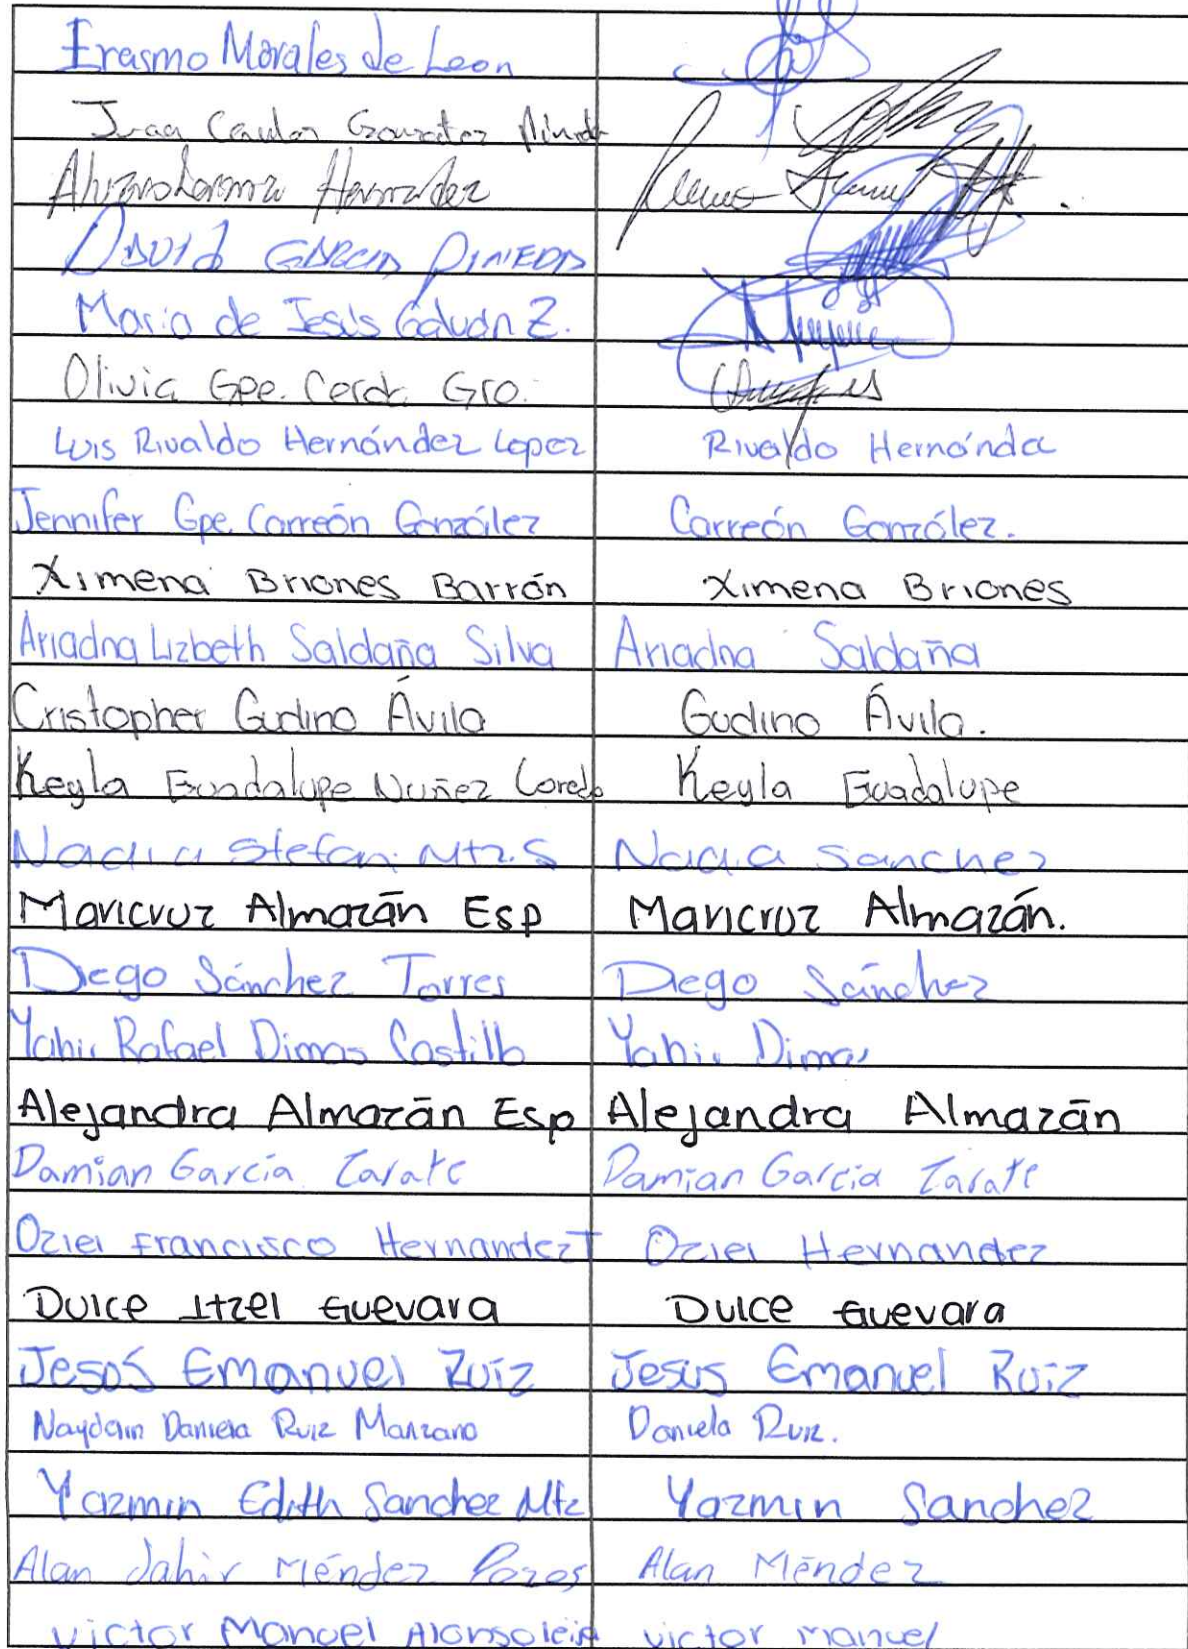 Erasmo Morales de Leon
Juan Carlos Gonzalez
Hernandez
David GARCIA PINEDA
Maria de Jesús Galván Z.
Olivia Gpe. Cerda Gro.
Luis Rivaldo Hernández Lopez Rivaldo Hernánde
Jennifer Gpe. Carreón González Carreón González.
Ximena Briones Barrón Ximena Briones
Ariadna Lizbeth Saldaña Silva Ariadna Saldaña
Cristopher Gudino Ávila Gudino Ávila.
Keyla Guadalupe Nuñez Loredo Keyla Guadalupe
Nadia Stefani Mtz. S Nadia Sanchez
Maricruz Almazán Esp Maricruz Almazán.
Diego Sánchez Torres Diego Sánchez
Yahir Rafael Dimas Castillo Yahir Dimas
Alejandra Almazán Esp Alejandra Almazán
Damian García Zarate Damian García Zarate
Oziel Francisco Hernandez T Oziel Hernandez
Dulce Itzel Guevara Dulce Guevara
Jesús Emanuel Ruiz Jesus Emanuel Ruiz
Daniela Ruiz Manzano Daniela Ruiz.
Yazmin Edith Sanchez Mtz Yazmin Sanchez
Alan Jahir Méndez Pozos Alan Méndez
Victor Manuel Alonso leija victor manuel